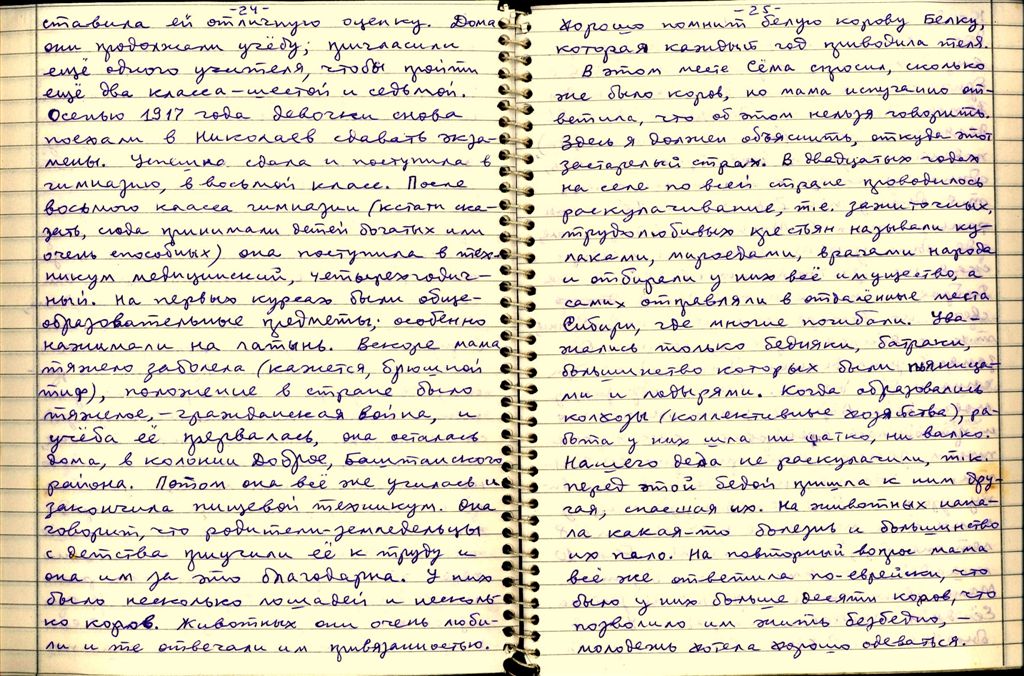 -24-
ставила ей отличную оценку. Дома
они продолжали учёбу; пригласили
ещё одного учителя, чтобы пройти
ещё два класса – шестой и седьмой.
Осенью 1917 года девочки снова
поехали в Николаев сдавать экза-
мены. Успешно сдала и поступила в
гимназию, в восьмой класс. После
восьмого класса гимназии (кстати ска-
зать, сюда принимали детей богатых или
очень способных) она поступила в тех-
никум медицинский, четырехгодич-
ный. На первых курсах были обще-
образовательные предметы; особенно
нажимали на латынь. Вскоре мама
тяжело заболела (кажется, брюшной
тиф), положение в стране было
тяжелое, – гражданская война, и
учёба её прервалась, она осталась
дома, в колонии Доброе, Баштанского
района. Потом она всё же училась и
закончила пищевой техникум. Она
говорит, что родители-земледельцы
с детства приучили её к труду и
она им за это благодарна. У них
было несколько лошадей и несколь-
ко коров. Животных они очень люби-
ли и те отвечали им привязанностью.
-25-
Хорошо помнит белую корову Белку,
которая каждый год приводила теля.
В этом месте Сёма спросил, сколько
же было коров, но мама испуганно от-
ветила, что об этом нельзя говорить.
Здесь я должен объяснить, откуда этот
застарелый страх. В двадцатых годах
на селе по всей стране проводилось
раскулачивание, т.е. зажиточных,
трудолюбивых крестьян называли ку-
лаками, мироедами, врагами народа
и отбирали у них всё имущество, а
самих отправляли в отдалённые места
Сибири, где многие погибали. Ува-
жались только бедняки, батраки,
большинство которых были пьяница-
ми и лодырями. Когда образовались
колхозы (коллективные хозяйства), ра-
бота у них шла ни шатко, ни валко.
Нашего деда не раскулачили, т.к.
перед этой бедой пришла к ним дру-
гая, спасшая их. На животных напа-
ла какая-то болезнь и большинство
их пало. На повторный вопрос мама
всё же ответила по-еврейски, что
было у них больше десяти коров, что
позволило им жить безбедно, –
молодежь хотела хорошо одеваться.